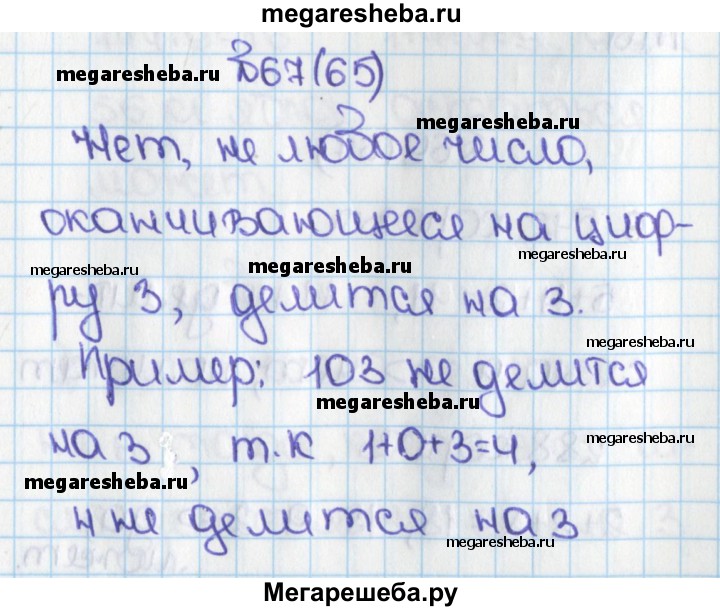 megaresheba.ru
megaresheba.ru
№67(65)
megaresheba.ru
Нет, не любое число,
оканчивающееся на циф-
megaresheba.ru
megaresheba.ru
megaresheba.ru
ру 3, делится на 3.
megaresheba.ru
Пример: 103 не делится
megaresheba.ru
на 3, т.к 1+0+3=4,
megaresheba.ru
megaresheba.ru
4 не делится на 3
megaresheba.ru
Мегарешеба.ру